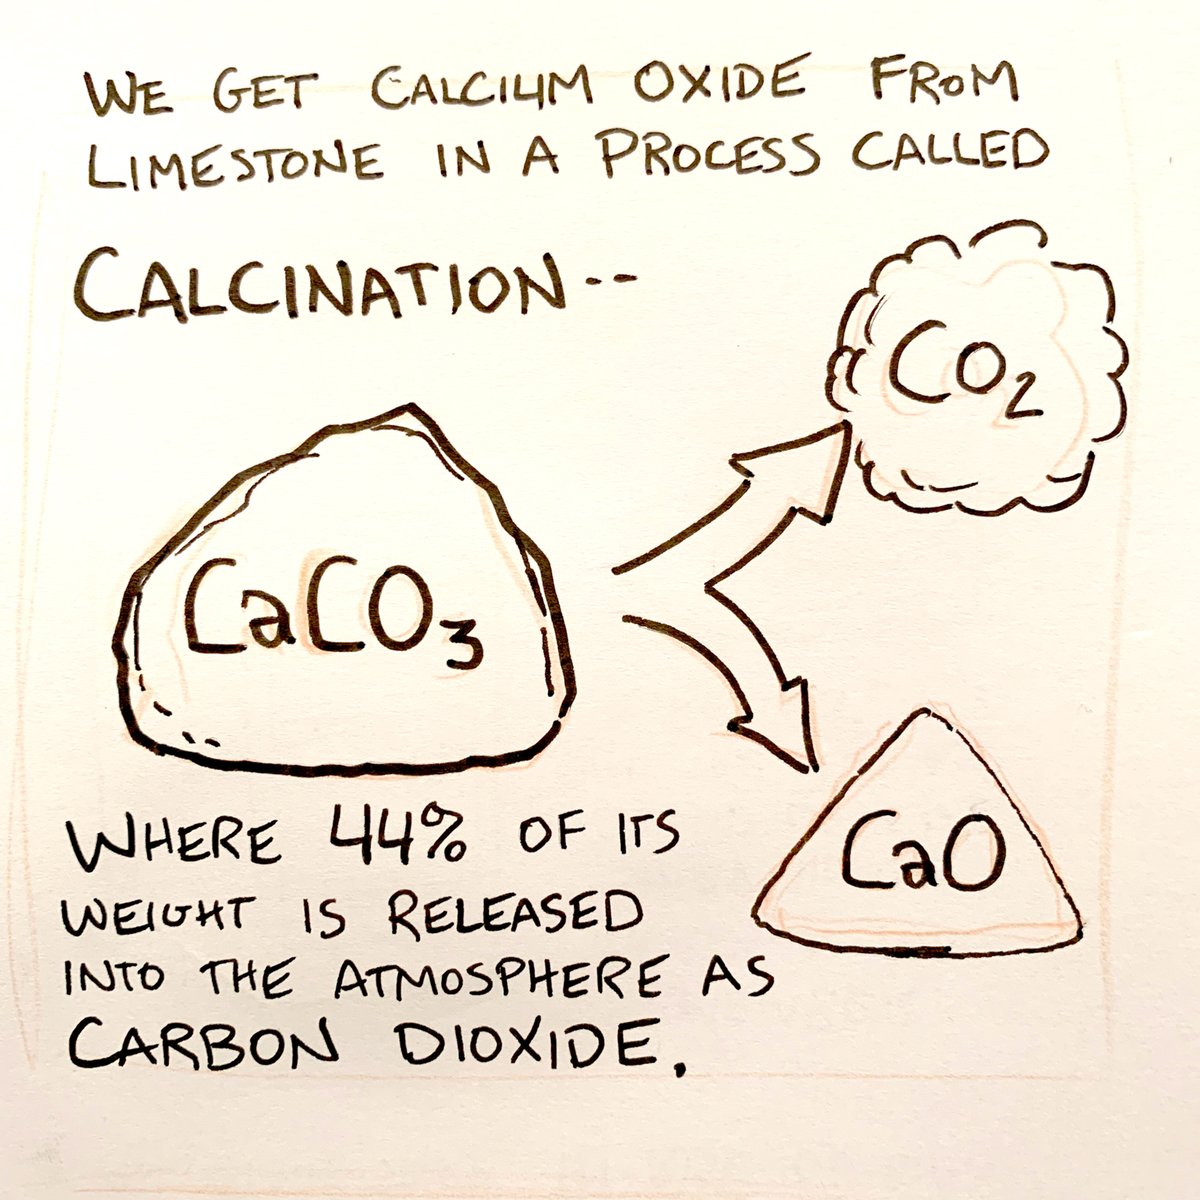 WE GET CALCIUM OXIDE FROM
LIMESTONE IN A PROCESS CALLED
CALCINATION--
CO₂
CaCO₃
CaO
WHERE 44% OF ITS
WEIGHT IS RELEASED
INTO THE ATMOSPHERE AS
CARBON DIOXIDE.